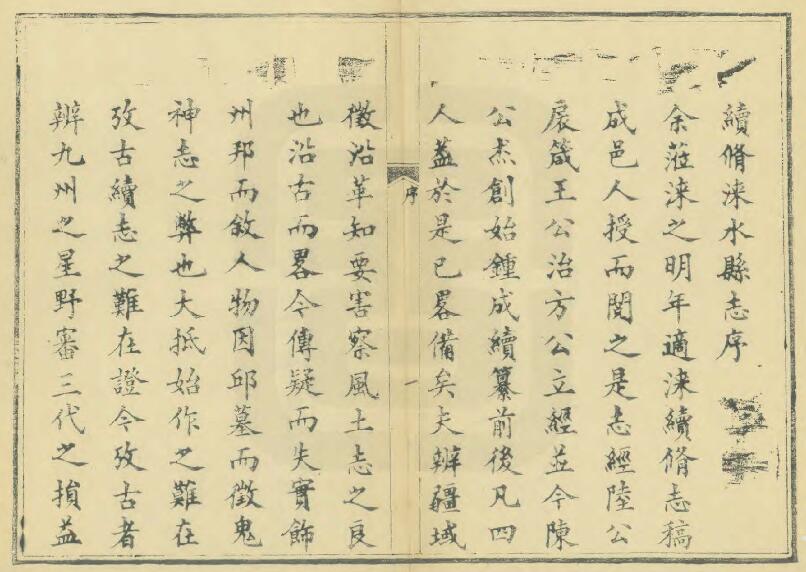 續脩淶水縣志序
余蒞淶之明年適淶續脩志稿
成邑人授而閱之是志經陸公
宸箴王公治方公立經並今陳
公杰創始鍾成續纂前後凡四
人葢於是巳畧備矣夫辨疆域
序
一
徵沿革知要害察風土志之良
也沿古而畧今傳疑而失實飾
州邦而敘人物因邱墓而徵鬼
神志之弊也大抵始作之難在
攷古續志之難在證今攷古者
辨九州之星野審三代之損益